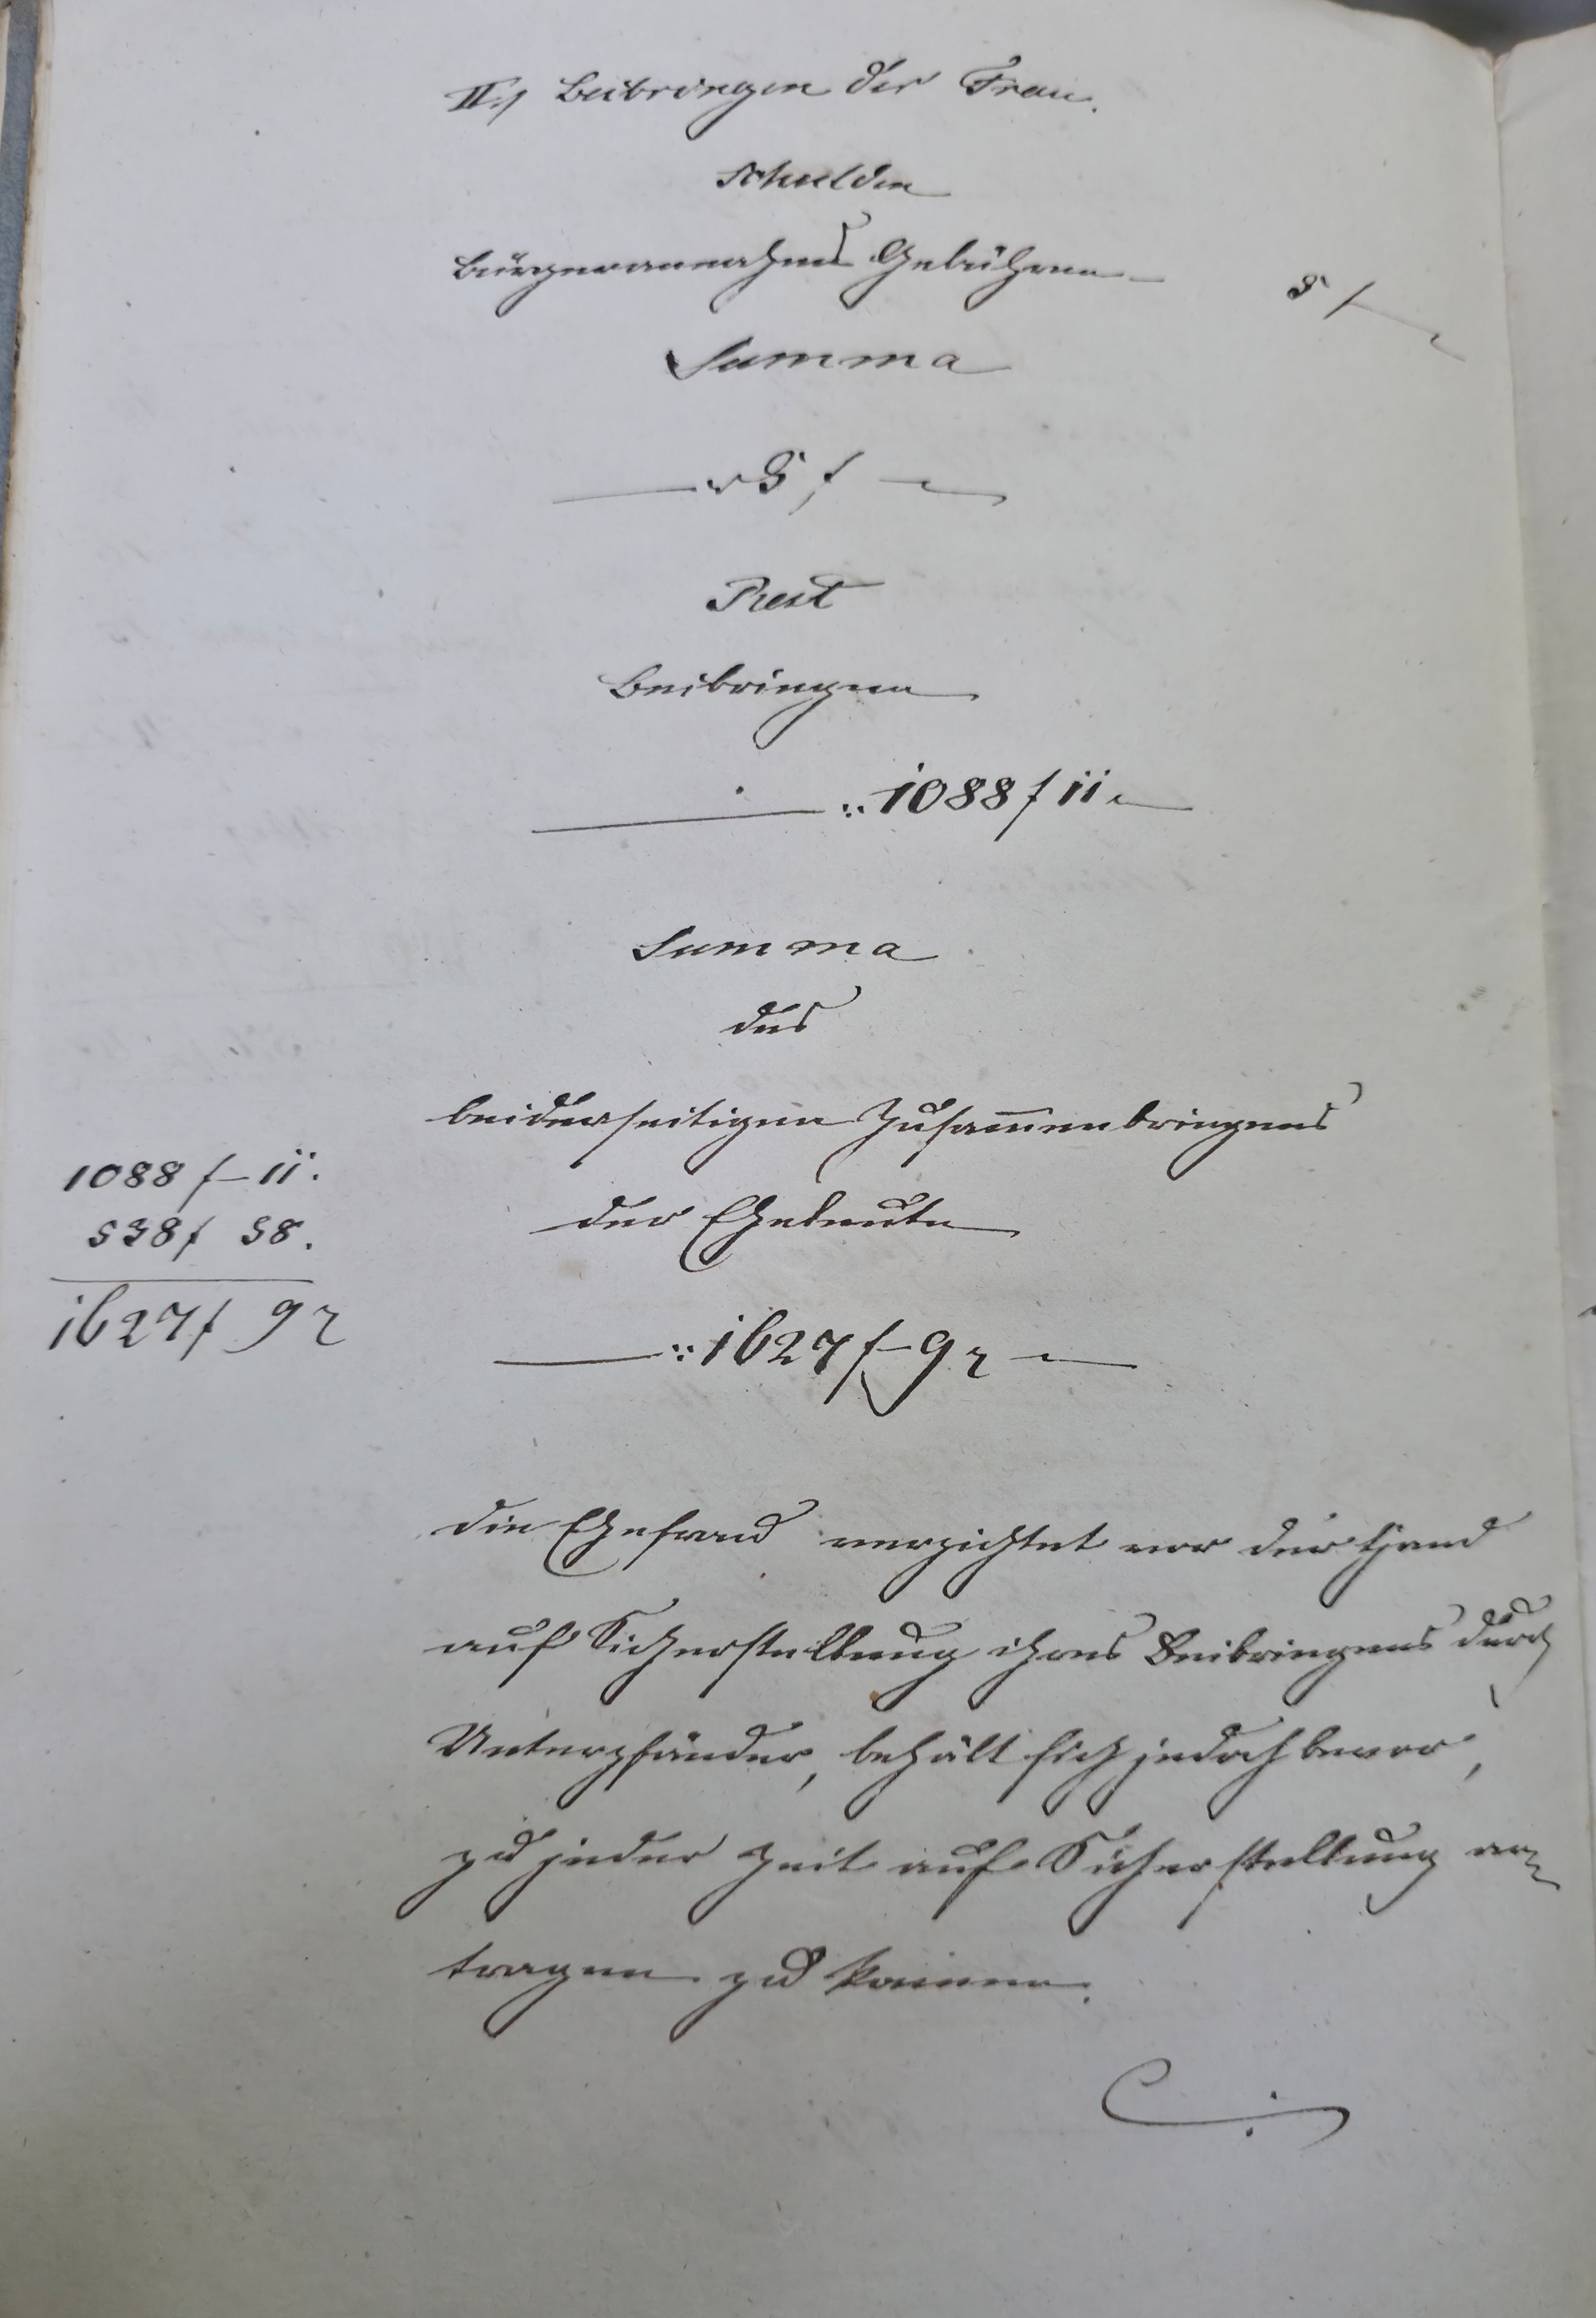 II./ Beibringen der Frau.
Schulden
Bürgerannahms Gebühren 5 f
Summa
5 f
Rest
Beibringen
1088 f 11
Summa
des
beiderseitigen Zusam̅enbringens
1088 f – 11.
538 f 58.
1627 f 9 x
der Eheleute
1627 f – 9 x
Die Ehefrau verzichtet vor der Hand
auf Sicherstellung ihres Beibringens durch
Unterpfänder, behält sich jedoch bevor,
zu jeder Zeit auf Sicherstellung an=
tragen zu können.